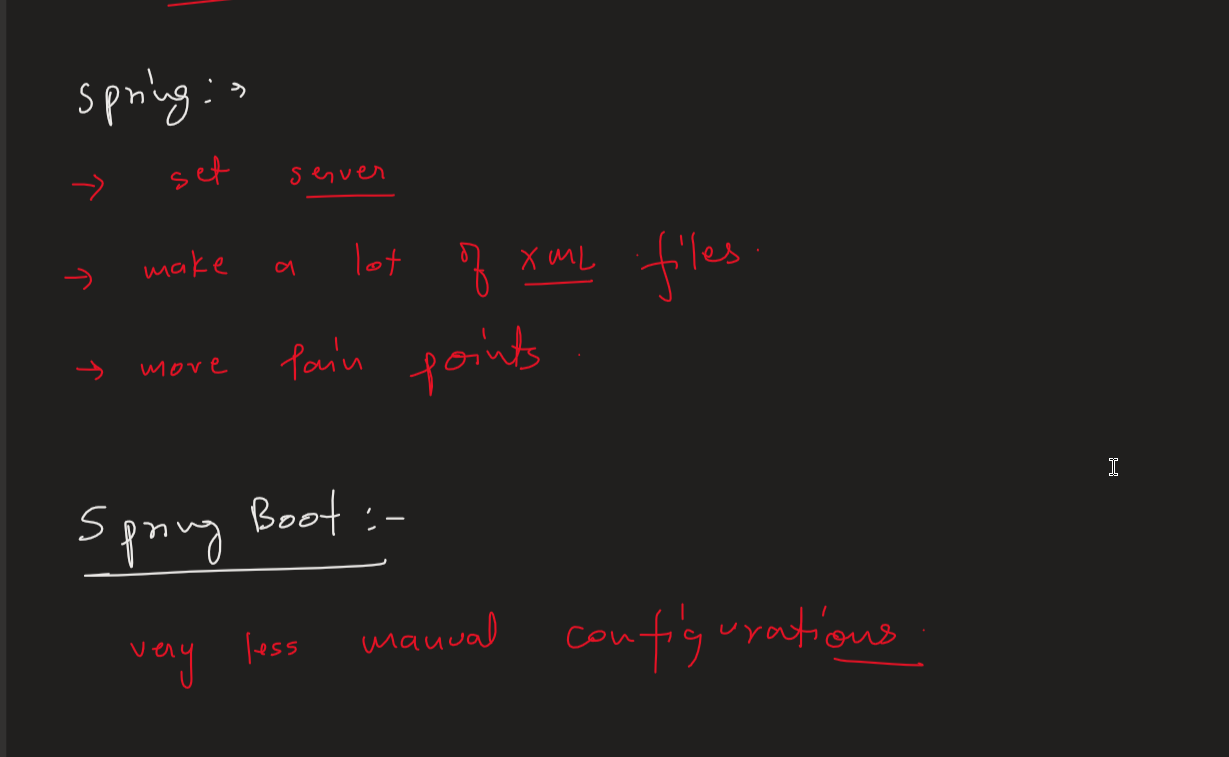 Spring:→
→ set server
→ make a lot of XML files.
→ more pain points.
Spring Boot :-
very less manual configurations.